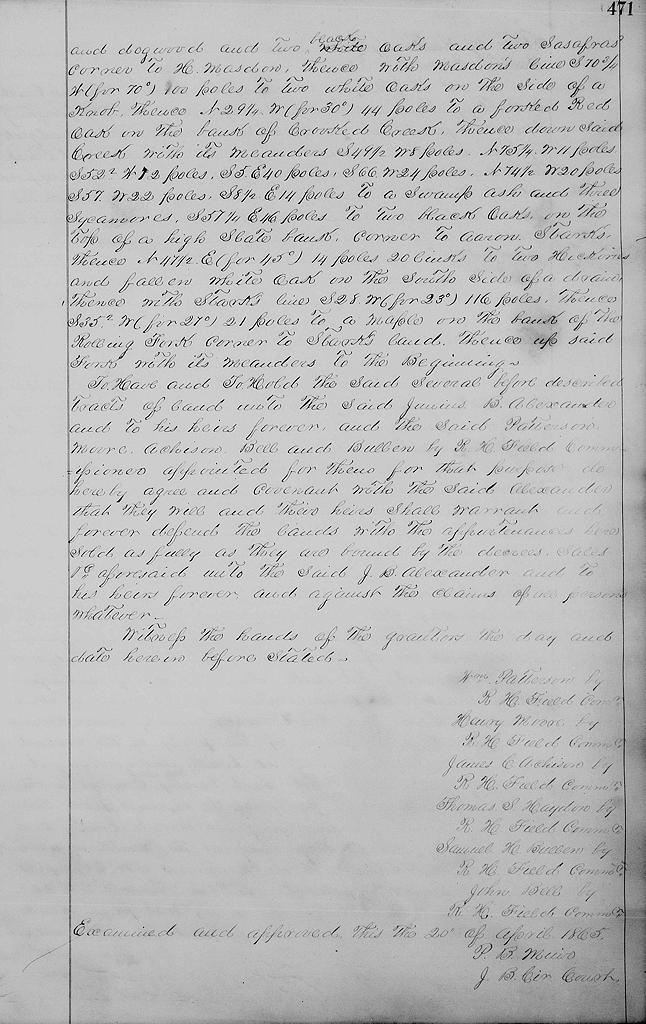 471
black
and dogwood and two white Oaks and two Sasafras
Corner to H. Masdon, thence with Masdon's line S 70°¼
W (for 70°) 100 poles to two white Oaks on the Side of a
Knob, thence N 29¼ W (for 30°) 44 poles to a forked Red
Oak on the bank of Crooked Creek, thence down Said
Creek with its meanders S 49½ W 8 poles, N 75¼ W 11 poles
S 52° W 12 poles, S 5 E 40 poles, S 66 W 24 poles, N 74½ W 20 poles
S 57 W 22 poles, S 8½ E 14 poles to a Swamp ash and three
Sycamores, S 57¼ E 46 poles to two black Oaks, on the
top of a high Slate bank, Corner to Aaron Stark's
thence N 47½ E (for 45°) 14 poles 20 links to two Hickories
and fallen white Oak on the South Side of a drain
thence with Starks line S 28 W (for 23°) 116 poles, thence
S 35° W (for 27°) 21 poles to a maple on the bank of the
Rolling Fork Corner to Stark's land, thence up said
Fork with its meanders to the Beginning
To Have and To Hold the Said Several before described
tracts of land unto the Said Junius B. Alexander
and to his heirs forever, and the Said Patterson
Moore, Achison, Bell and Bullen by R. H. Field Comm-
=issioner appointed for them for that purpose do
hereby agree and Covenant with the Said Alexander
that they will and their heirs Shall warrant and
forever defend the lands with the appurtenances here
Sold as fully as they are bound by the decrees, Sales
&c aforesaid unto the Said J. B. Alexander and to
his heirs forever, and against the claims of all persons
whatever
Witness the hands of the grantors the day and
date herein before Stated
Wm. Patterson by
R. H. Field Commr.
Henry Moore by
R. H. Field Commr.
James C Achison by
R. H. Field Commr.
Thomas S. Haydon by
R. H. Field Commr.
Samuel H. Bullen by
R. H. Field Commr.
John Bell by
R. H. Field Commr.
Examined and approved this the 20° of April 1865
P. B. Muir
J. B. Cir Court